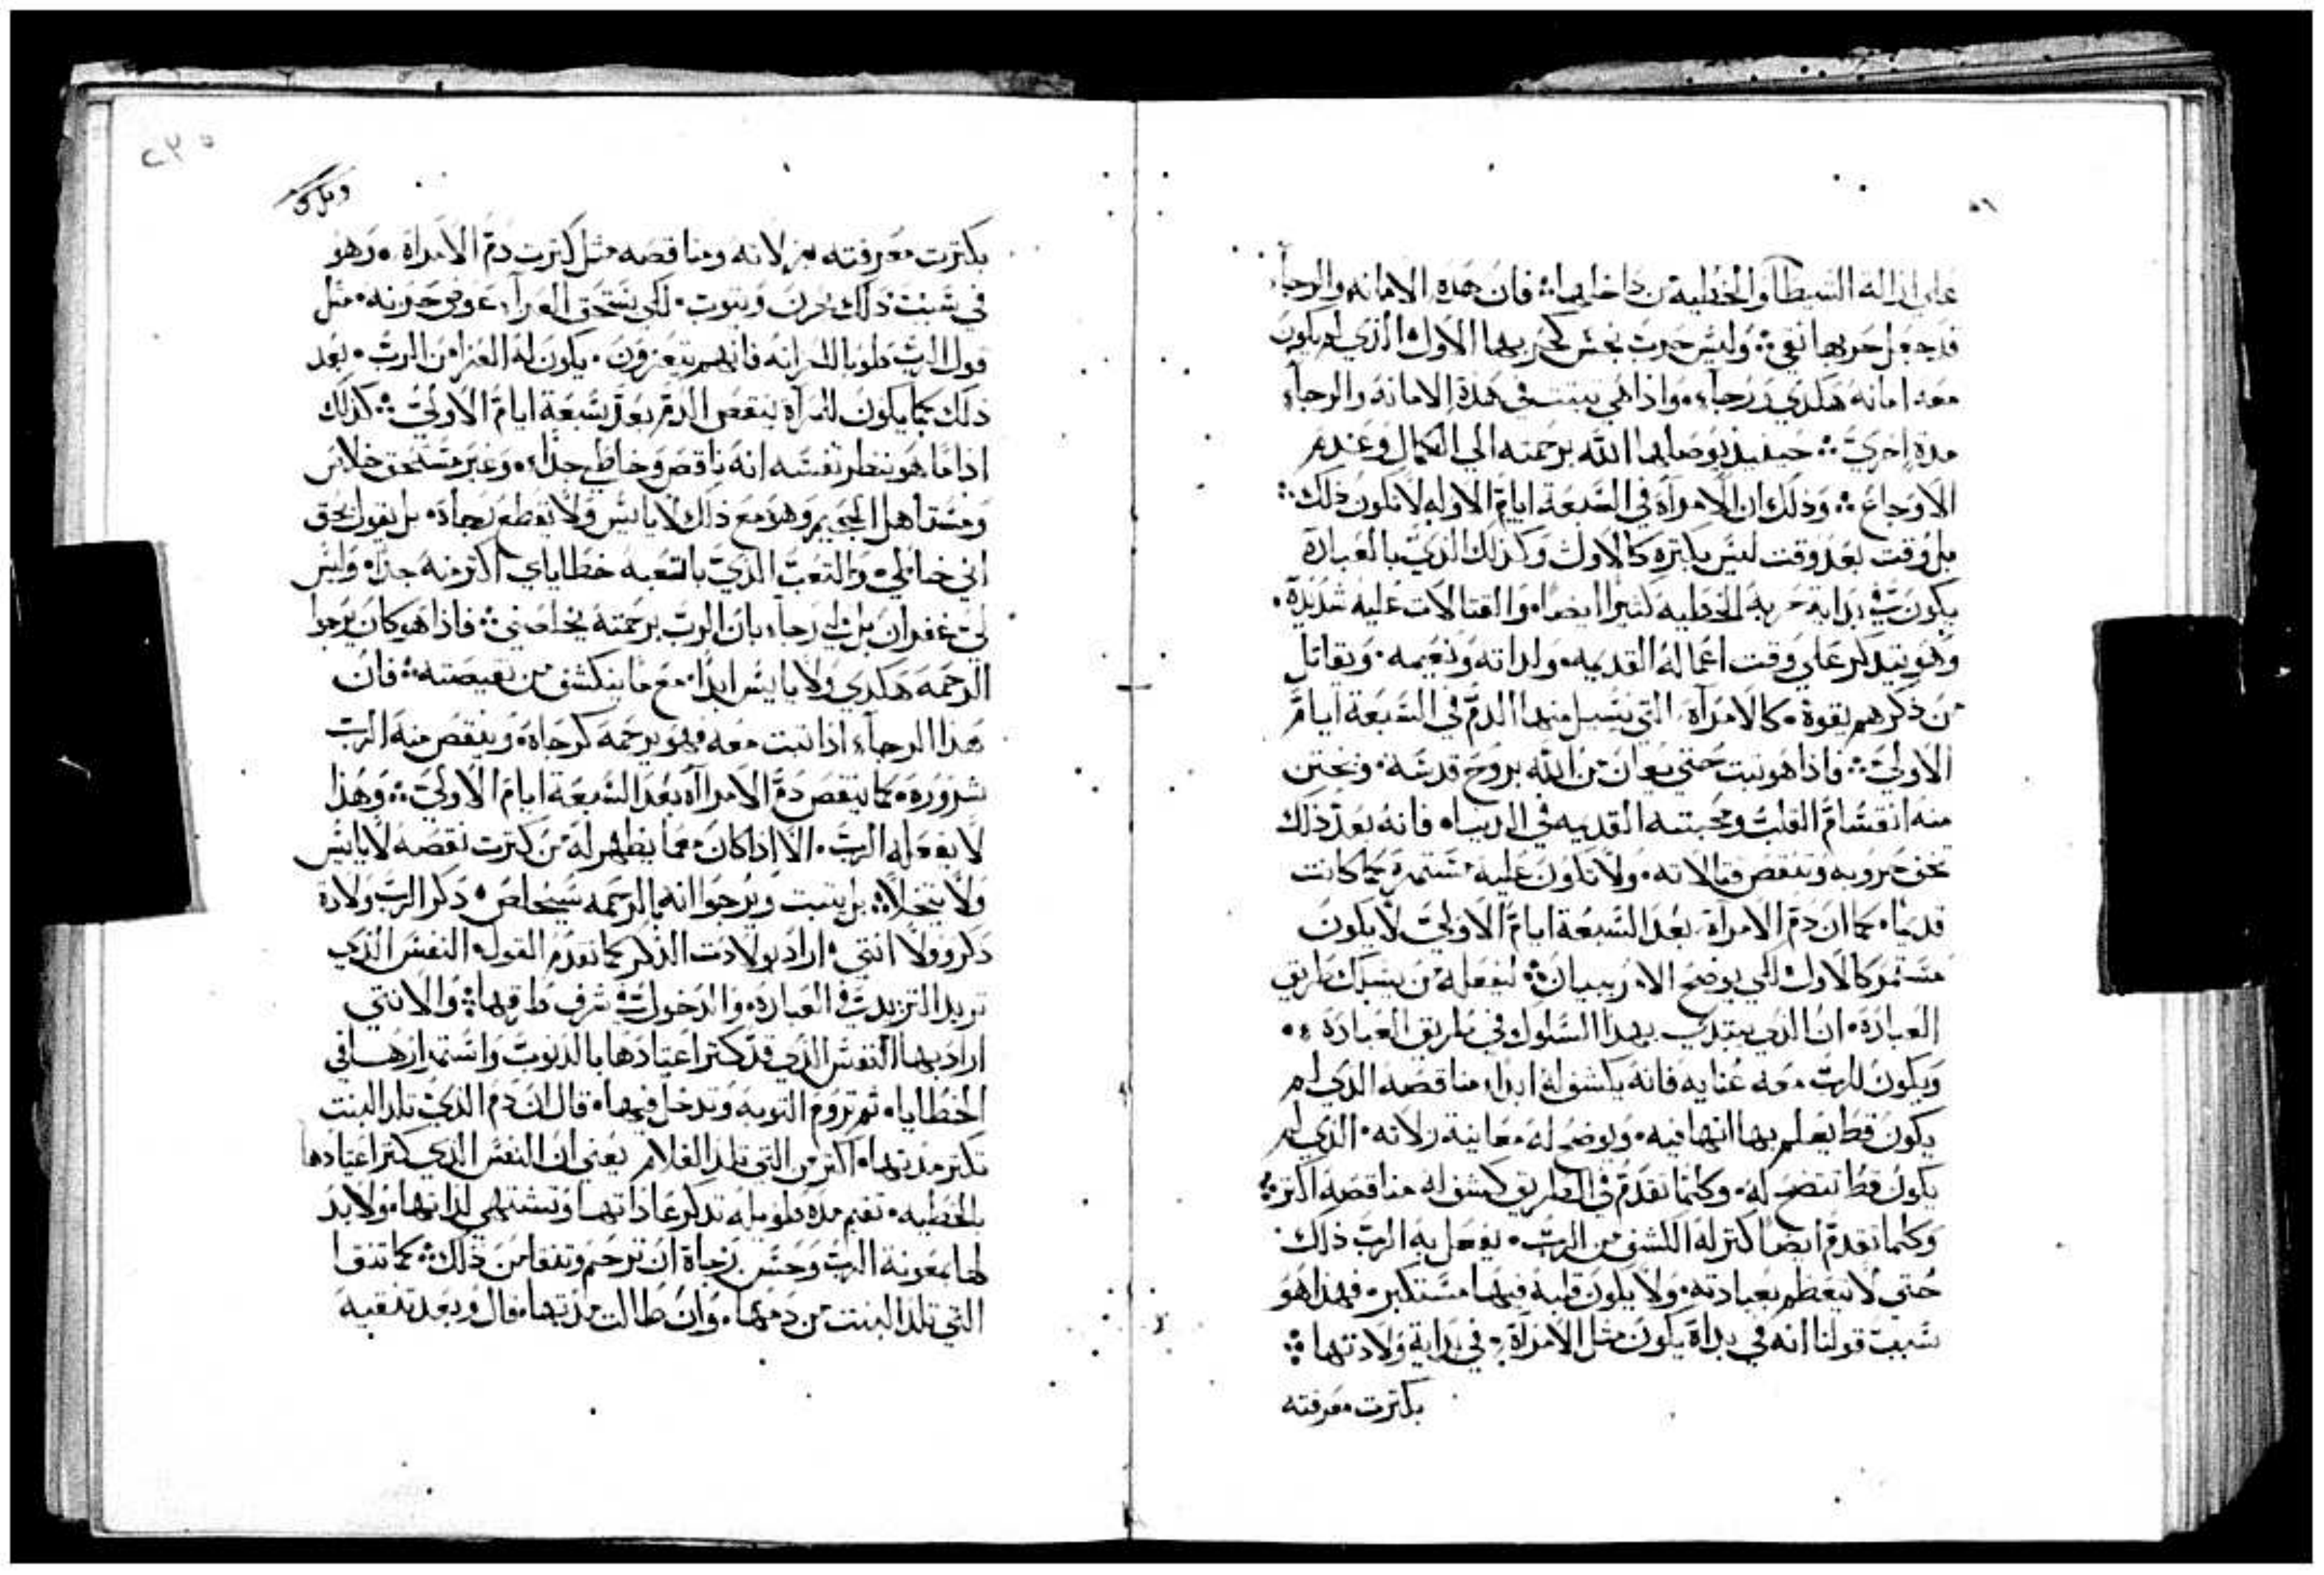 علي ازالة الشيطان والخطية من داخلها ؞ فان هذه الامانه والرجاء
قد جعل حربها نقي ؞ وليس حرب نجس كحربها الاول الذي لم يكون
معه امانه هكدي ورجاء ، واذا هي تبتت في هذة الامانه والرجاء
مدة اخري ؞ حينيذ يوصلها الله برحمته الي الكمال وعدم
الاوجاع ؞ وذلك ان الامرآة في السبعة ايام الاوله لا تكون ذلك ؞
بل وقت بعد وقت ليس بكتره كالاول وكذلك الذي بالعبادة
يكون في بداية حربه الخطيه كثيرا ايضا ، والقتالات عليه شديدة ،
وهو يتدكر علي وقت اعماله القديمه ولداته ونعيمه ، ويقاتل
من ذكرهم بقوة ، كالامرآة التي يسيل منها الدم في السبعة ايام
الاولي ؞ واذا هو تبت حتي يعان من الله بروح قدسه ، ويختن
منه انقسام القلب ومحبته القديمه في الدنيا ، فانه بعد ذلك
تخف حروبه وتنقص قتالاته ، ولا تكون عليه مستمرة كما كانت
قديما ، كما ان دم الامرآة بعد السبعة ايام الاولي لا يكون
مستمر كالاول لكي يوضح الامر ببيان ؞ ليفعله من يسلك طريق
العبادة ، ان الذي يبتدي بهذا السلوك في طريق العبادة ،
ويكون للرب معه عنايه فانه يكشف له ابدا ، مناقصه الذي لم
يكون قط يعلم بها انها فيه ، ويوضح له معاينة زلاته ، الذي لم
يكون قط تتضح له ، وكلما تقدم في الطريق كشف له مناقصه اكتر ؞
وكلما تقدم ايضا كتر له الكشف من الرب ، يفعل به الرب ذلك
حتي لا يتعظم بعبادته ، ولا يكون قلبه فيها مستكبر ، فهذا هو
سبب قولنا انه في بداة يكون مثل الامرآة ، في بداية ولادتها ؞
بكترت معرفته
٢٣٥
بكترت معرفته بزلاته ومناقصه مثل كترت دم الامرآة ، وهو
في سبب ذلك يحزن وينوب ، لكي يستحق العزآء عوض حزنه ، مثل
قول الرب طوبا للحزانه فانهم يتعزون ، يكون له العزا من الرب ، بعد
ذلك كما يكون للمرآة ينقص الدم بعد سبعة ايام الاولي ؞ كذلك
اذا ما هو ينظر نفسه انه ناقص وخاطي جدا ، وغير مستحق خلاص
ومستاهل الجحيم وهو مع ذلك لا ياىس ولا يقطع رجاه ، بل يقول بحق
اني خاطي ، والتعب الذي باتعبه خطاياي اكتر منه جدا ، وليس
لي غفران بل لي رجاء بان الرب برحمته يخلصني ؞ فاذا هو كان يرجوا
الرحمه هكدي ولا ياىس ابدا ، مع ما ينكشف من نقيصته ؞ فان
هذا الرجاء اذا تبت معه فهو يرحمه كرجاه ، وينقص منه الرب
شروره ، كما ينقص دم الامراآة بعد السبعة ايام الاولي ؞ وهذا
لا يفعله الرب ، الا اذا كان مما يظهر له من كترت نقصه لا ياىس
ولا يتخلا ؞ بل يتبت ويرجوا انه بالرحمه سيخلص ، ذكر الرب ولادة
ذكر وولا انتي ، اراد بولادت الذكر كما تقدم القول ، النفس الذي
تريد التزيد في العباده ، والدخول في شرف طرقها ؞ والانتي
اراد بها النفس الذي قد كتر اعتيادها بالدنوب واستمرارها في
الخطايا ، تم تروم التوبه وتدخل فيها ، قال ان دم الذي تلد البنت
تكتر مدتها ، اكتر من التي تلد الغلام يعني ان النفس الذي كتر اعتيادها
بالخطيه ، تقيم مده طويله تدكر عاداتها وتشتهي لداتها ، ولا بد
لها بمعونة الرب وحسن رجاة ان ترحم وتنقا من ذلك ؞ كما تنقا
التي تلد البنت من دمها ، وان طالت مدتها ، قال وبعد تنقيه